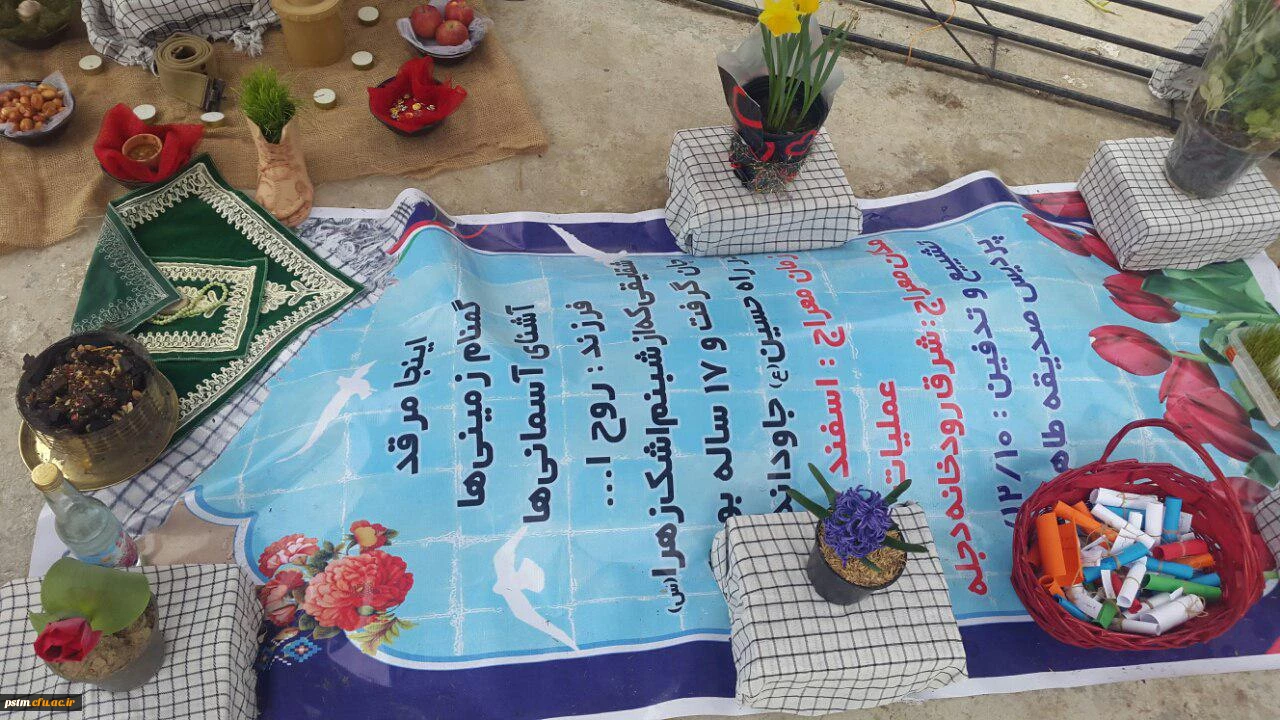 اینجا مرقد
گمنام زمینی‌ها
آشنای آسمانی‌ها
فرزند : روح ا...
شقایقی که از شبنم اشک زهرا(س)
جان گرفت و ۱۷ ساله بو
در راه حسین(ع) جاودانه
زمان معراج : اسفند
عملیات
مکان معراج : شرق رودخانه دجله
تشییع و تدفین : ۱۲/۱۰/
پردیس صدیقه طاه
pstm.cfu.ac.ir